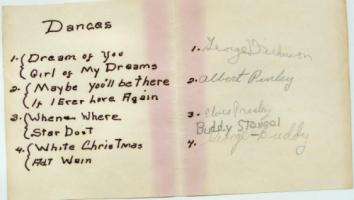 Dances
1. { Dream of You
{ Girl of My Dreams
2. { Maybe you'll be there
{ If I Ever Love Again
3. { When - Where
{ Star Dust
4. { White Christmas
{ Auf Wein
1. George
2. Albert
3. Elvis Presley
Buddy
4. George - Buddy